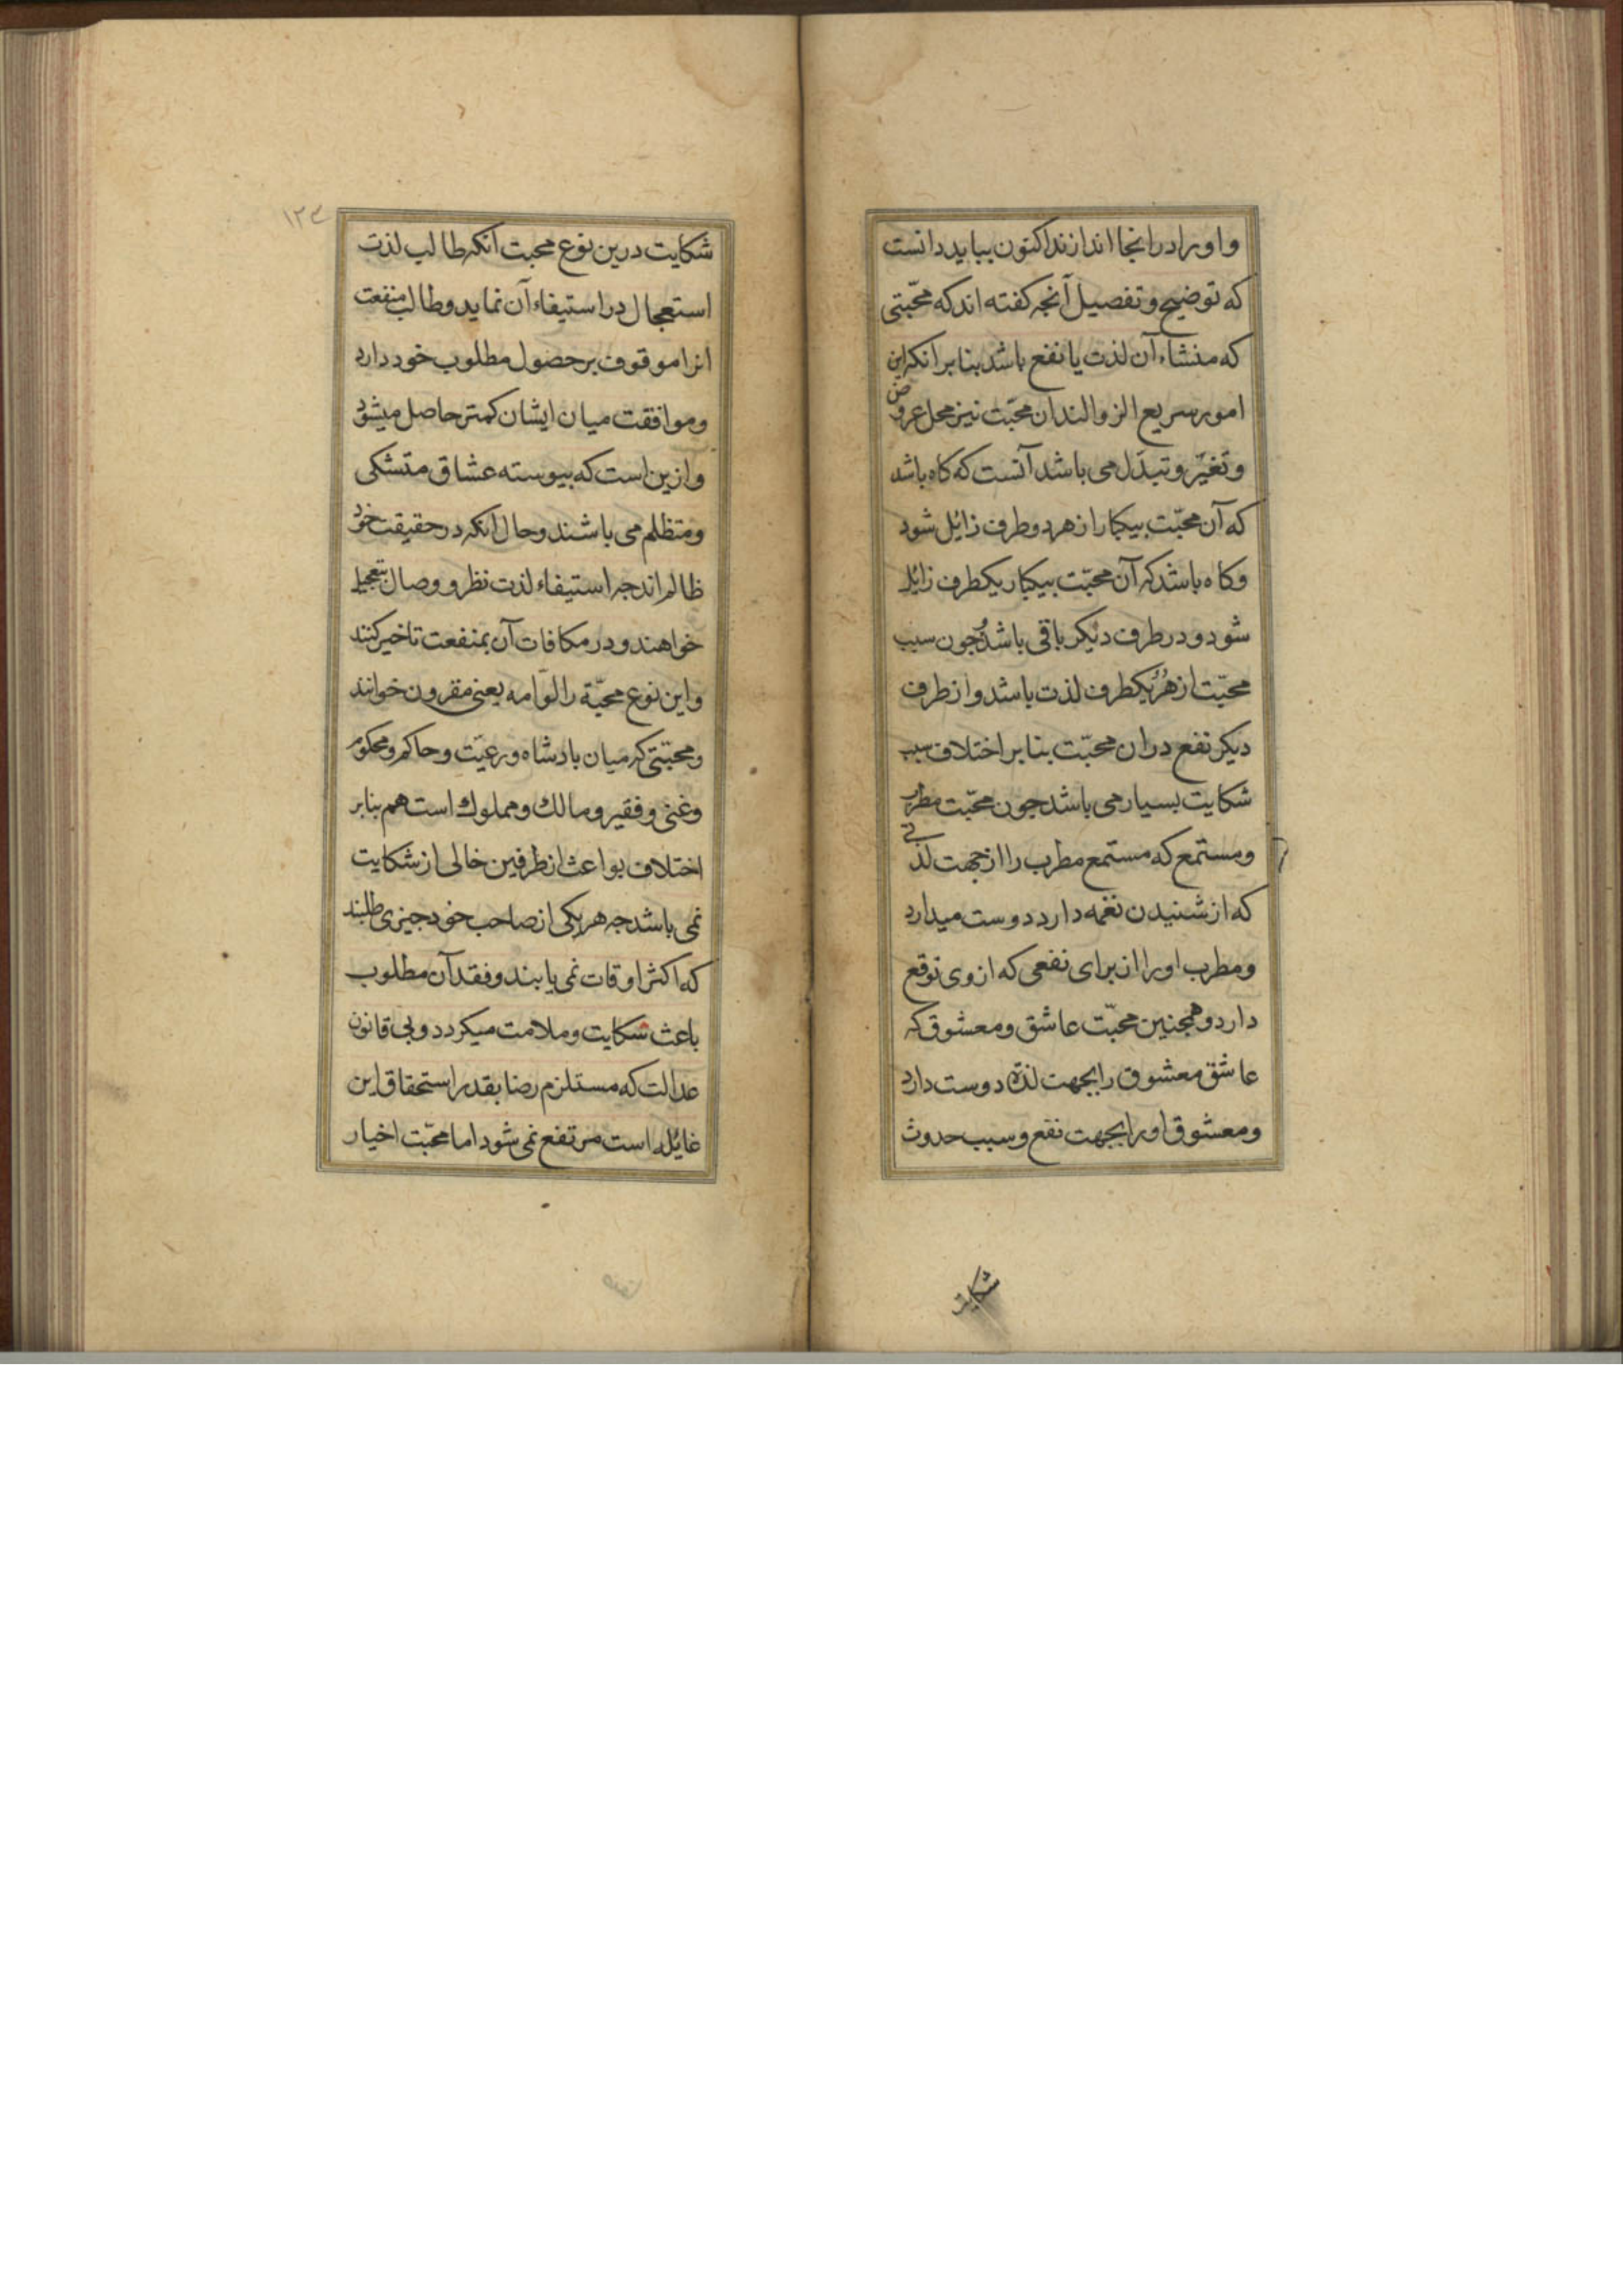 و او را در انجا اندازند اکنون بباید دانست
که توضیح و تفصیل آنجه کفته اند که محبّتی
که منشاء آن لذت یا نفع باشد بنا بر انکه این
امور سریع الزوالند ان محبّت نیز محل عروض
و تغیّر و تبدّل می باشد آنست که کاه باشد
که آن محبّت بیکبار از هر دو طرف زائل شود
و کاه باشد که آن محبّت بیکبار یکطرف زائل
شود و در طرف دیکر باقی باشد جون سبب
محبّت از هر یکطرف لذت باشد و از طرف
دیکر نفع دران محبّت بنا بر اختلاف سبب
شکایت بسیار می باشد جون محبّت مطرب
و مستمع که مستمع مطرب را از جهت لذتی
که از شنیدن نغمه دارد دوست میدارد
و مطرب او را از برای نفعی که از وی توقع
دارد و همجنین محبّت عاشق و معشوق که
عاشق معشوق را بجهت لذة دوست دارد
و معشوق او را بجهت نفع و سبب حدوث
شکایت
۱۲۴
شکایت درین نوع محبت آنکه طالب لذت
استعجال در استیفاء آن نماید و طالب منفعت
انرا موقوف بر حصول مطلوب خود دارد
و موافقت میان ایشان کمتر حاصل میشود
و ازین است که بیوسته عشاق متشکی
و متظلم می باشند و حال انکه در حقیقت خود
ظالم اند جه استیفاء لذت نظر و وصال بتعجیل
خواهند و در مکافات آن بمنفعت تاخیر کنند
و این نوع محبّة را لوّامه یعنی مقرون خوانند
و محبّتی که میان بادشاه و رعیّت و حاکم و محکوم
و غنی و فقیر و مالك و مملوك است هم بنا بر
اختلاف بواعث از طرفین خالی از شکایت
نمی باشد جه هر یکی از صاحب خود جیزی طلبند
که اکثر اوقات نمی یابند و فقد آن مطلوب
باعث شکایت و ملامت میکردد و بی قانون
عدالت که مستلزم رضا بقدر استحقاق این
غایله است مرتفع نمی شود اما محبّت اخیار